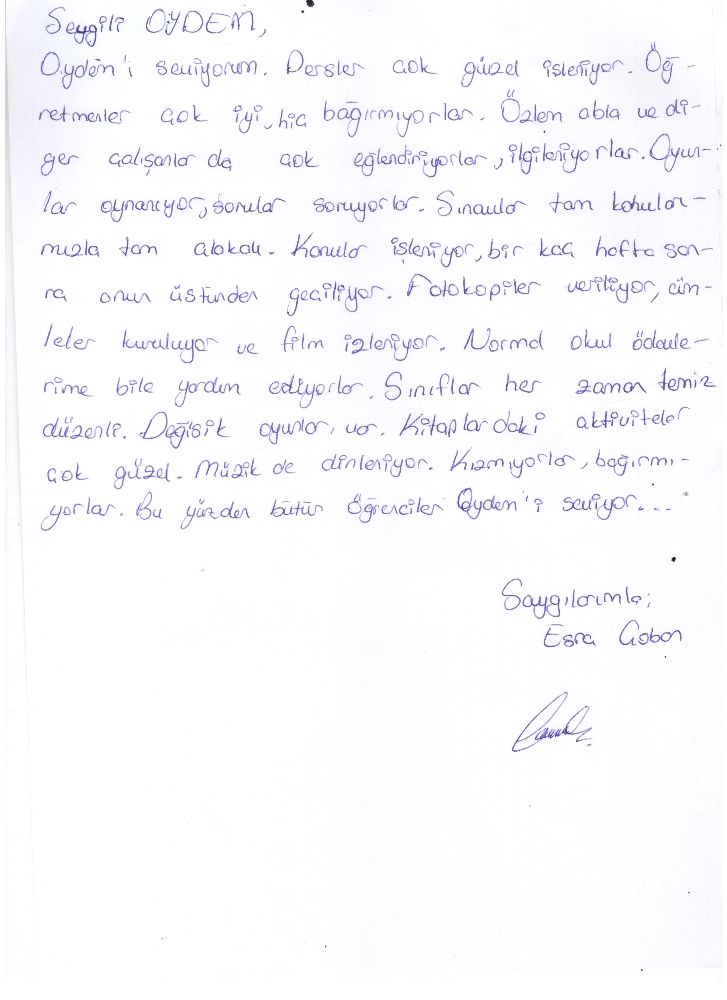 Sevgili OYDEM,
Oydem'i seviyorum. Dersler çok güzel işleniyor. Öğ-
retmenler çok iyi, hiç bağırmıyorlar. Özlem abla ve di-
ğer çalışanlar da çok eğlendiriyorlar, ilgileniyorlar. Oyun-
lar oynanıyor, sorular soruyorlar. Sınavlar tam konular-
mızla tam alakalı. Konular işleniyor, bir kaç hafta son-
ra onun üstünden geçiliyor. Fotokopiler veriliyor, cüm-
leler kuruluyor ve film izleniyor. Normal okul ödevle-
rime bile yardım ediyorlar. Sınıflar her zaman temiz
düzenli. Değişik oyunlar var. Kitaplardaki aktiviteler
çok güzel. Müzik de dinleniyor. Kızmıyorlar, bağırmı-
yorlar. Bu yüzden bütün Öğrenciler Oydem'i seviyor...
Saygılarımla;
Esra Çoban